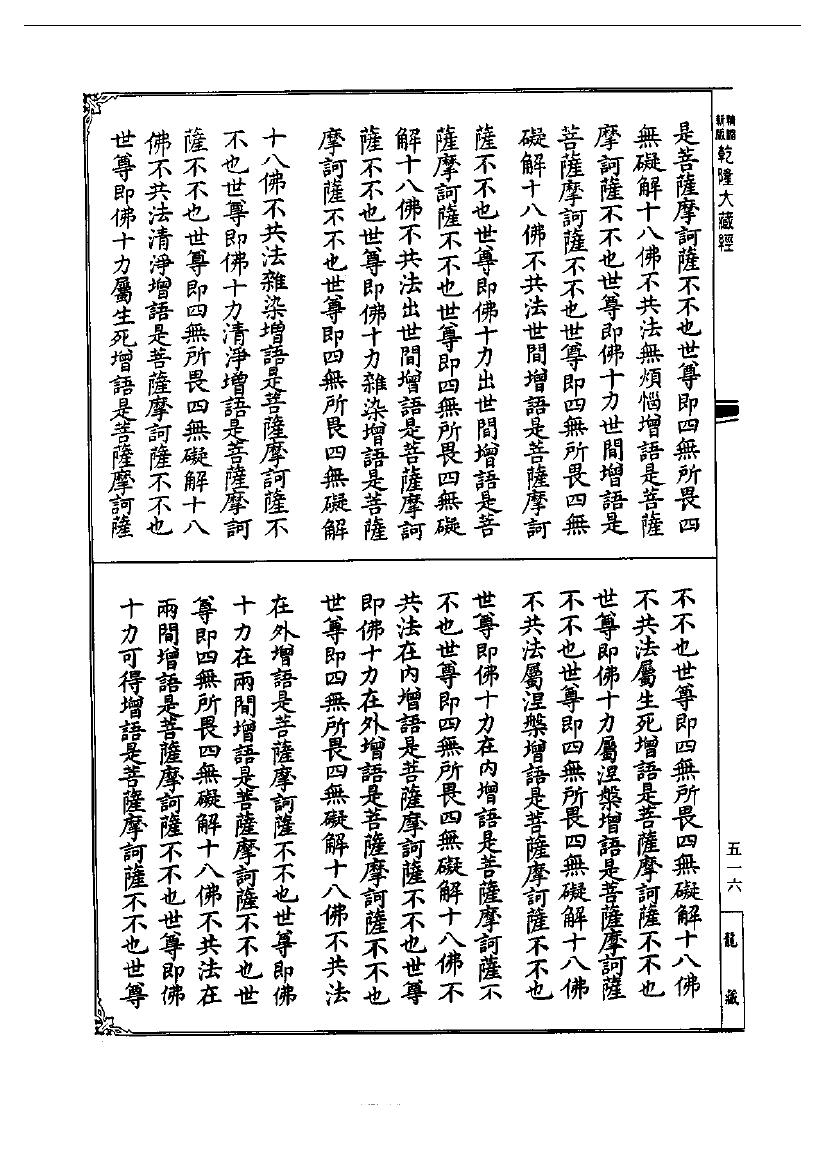 精縮
新版
乾隆大藏經
是菩薩摩訶薩不不也世尊即四無所畏四
無礙解十八佛不共法無煩惱增語是菩薩
摩訶薩不不也世尊即佛十力世間增語是
菩薩摩訶薩不不也世尊即四無所畏四無
礙解十八佛不共法世間增語是菩薩摩訶
薩不不也世尊即佛十力出世間增語是菩
薩摩訶薩不不也世尊即四無所畏四無礙
解十八佛不共法出世間增語是菩薩摩訶
薩不不也世尊即佛十力雜染增語是菩薩
摩訶薩不不也世尊即四無所畏四無礙解
十八佛不共法雜染增語是菩薩摩訶薩不
不也世尊即佛十力清淨增語是菩薩摩訶
薩不不也世尊即四無所畏四無礙解十八
佛不共法清淨增語是菩薩摩訶薩不不也
世尊即佛十力屬生死增語是菩薩摩訶薩
不不也世尊即四無所畏四無礙解十八佛
不共法屬生死增語是菩薩摩訶薩不不也
世尊即佛十力屬涅槃增語是菩薩摩訶薩
不不也世尊即四無所畏四無礙解十八佛
不共法屬涅槃增語是菩薩摩訶薩不不也
世尊即佛十力在內增語是菩薩摩訶薩不
不也世尊即四無所畏四無礙解十八佛不
共法在內增語是菩薩摩訶薩不不也世尊
即佛十力在外增語是菩薩摩訶薩不不也
世尊即四無所畏四無礙解十八佛不共法
在外增語是菩薩摩訶薩不不也世尊即佛
十力在兩間增語是菩薩摩訶薩不不也世
尊即四無所畏四無礙解十八佛不共法在
兩間增語是菩薩摩訶薩不不也世尊即佛
十力可得增語是菩薩摩訶薩不不也世尊
五一六
龍藏